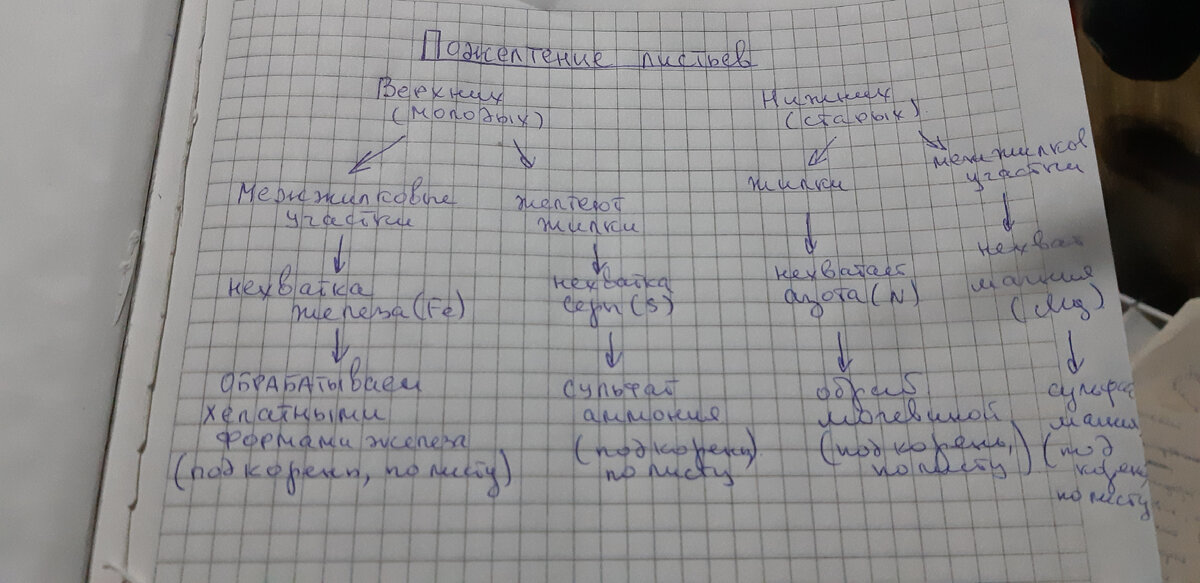 Пожелтение листьев
Верхних
(молодых)
Нижних
(старых)
Межжилковые
участки
желтеют
жилки
жилки
межжилков
участки
нехватка
железа (Fe)
нехватка
серы (S)
нехватает
азота (N)
нехват
магния
(Mg)
ОБРАБАТЫВАЕМ
хелатными
формами железа
(под корень, по листу)
сульфат
аммония
(под корень,
по листу
обраб
мочевиной
(под корень,
по листу)
сульфа
магния
(под
корен
по листу